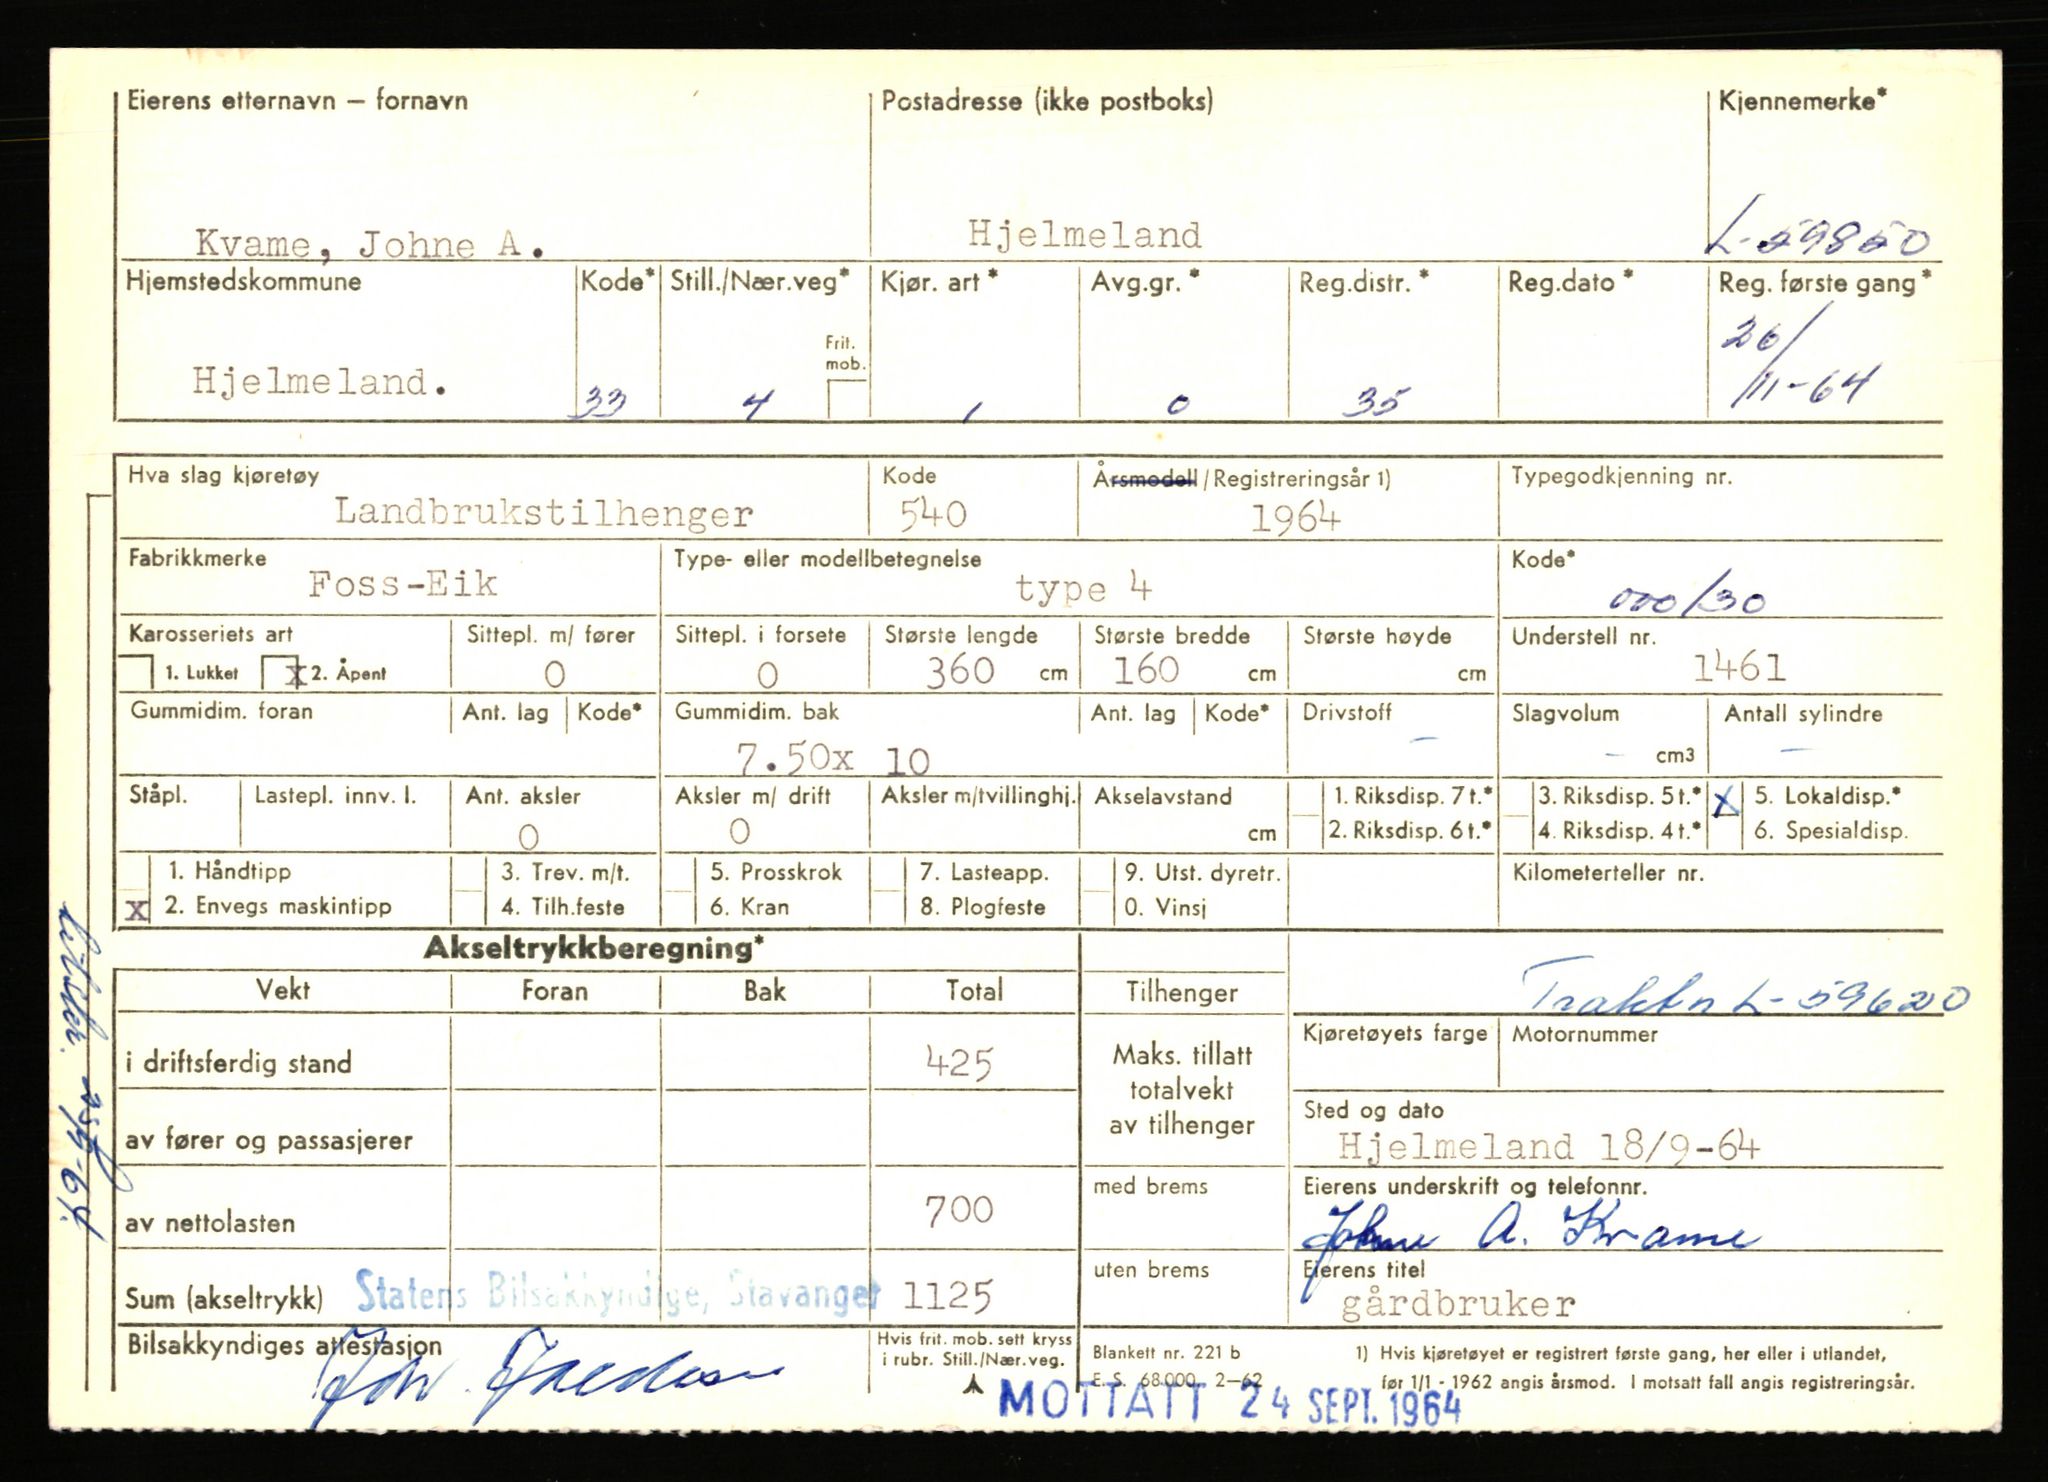 Eierens etternavn — fornavn Postadresse (ikke postboks) Kjennemerke*
Kvame, Johne A. Hjelmeland L-59850
Hjemstedskommune Kode* Still./Nær.veg* Kjør. art* Avg.gr.* Reg.distr.* Reg.dato* Reg. første gang*
Frit. mob.
Hjelmeland. 33 4 1 0 35 26/11-64
Hva slag kjøretøy Kode Årsmodell/Registreringsår 1) Typegodkjenning nr.
Landbrukstilhenger 540 1964
Fabrikkmerke Type- eller modellbetegnelse Kode*
Foss-Eik type 4 000/30
Karosseriets art Sittepl. m/ fører Sittepl. i forsete Største lengde Største bredde Største høyde Understell nr.
1. Lukket x 2. Åpent 0 0 360 cm 160 cm cm 1461
Gummidim. foran Ant. lag Kode* Gummidim. bak Ant. lag Kode* Drivstoff Slagvolum Antall sylindre
7.50x 10 – – cm3 –
Ståpl. Lastepl. innv. l. Ant. aksler Aksler m/ drift Aksler m/tvillinghj. Akselavstand 1. Riksdisp. 7 t.* 3. Riksdisp. 5 t.* x 5. Lokaldisp.*
0 0 cm 2. Riksdisp. 6 t.* 4. Riksdisp. 4 t.* 6. Spesialdisp.
1. Håndtipp 3. Trev. m/t. 5. Prosskrok 7. Lasteapp. 9. Utst. dyretr. Kilometerteller nr.
x 2. Envegs maskintipp 4. Tilh.feste 6. Kran 8. Plogfeste 0. Vinsj
Akseltrykkberegning*
Vekt Foran Bak Total Tilhenger L-59620
Kjøretøyets farge Motornummer
i driftsferdig stand 425 Maks. tillatt totalvekt av tilhenger
Sted og dato
av fører og passasjerer Hjelmeland 18/9-64
med brems Eierens underskrift og telefonnr.
av nettolasten 700 Johne A. Kvame
uten brems Eierens titel
Sum (akseltrykk) Statens Bilsakkyndige, Stavanger 1125 gårdbruker
Bilsakkyndiges attestasjon Hvis frit. mob. sett kryss i rubr. Still./Nær.veg. Blankett nr. 221 b 1) Hvis kjøretøyet er registrert første gang, her eller i utlandet,
E. S. 68.000 2-62 før 1/1 - 1962 angis årsmod. I motsatt fall angis registreringsår.
MOTTATT 24 SEPT. 1964